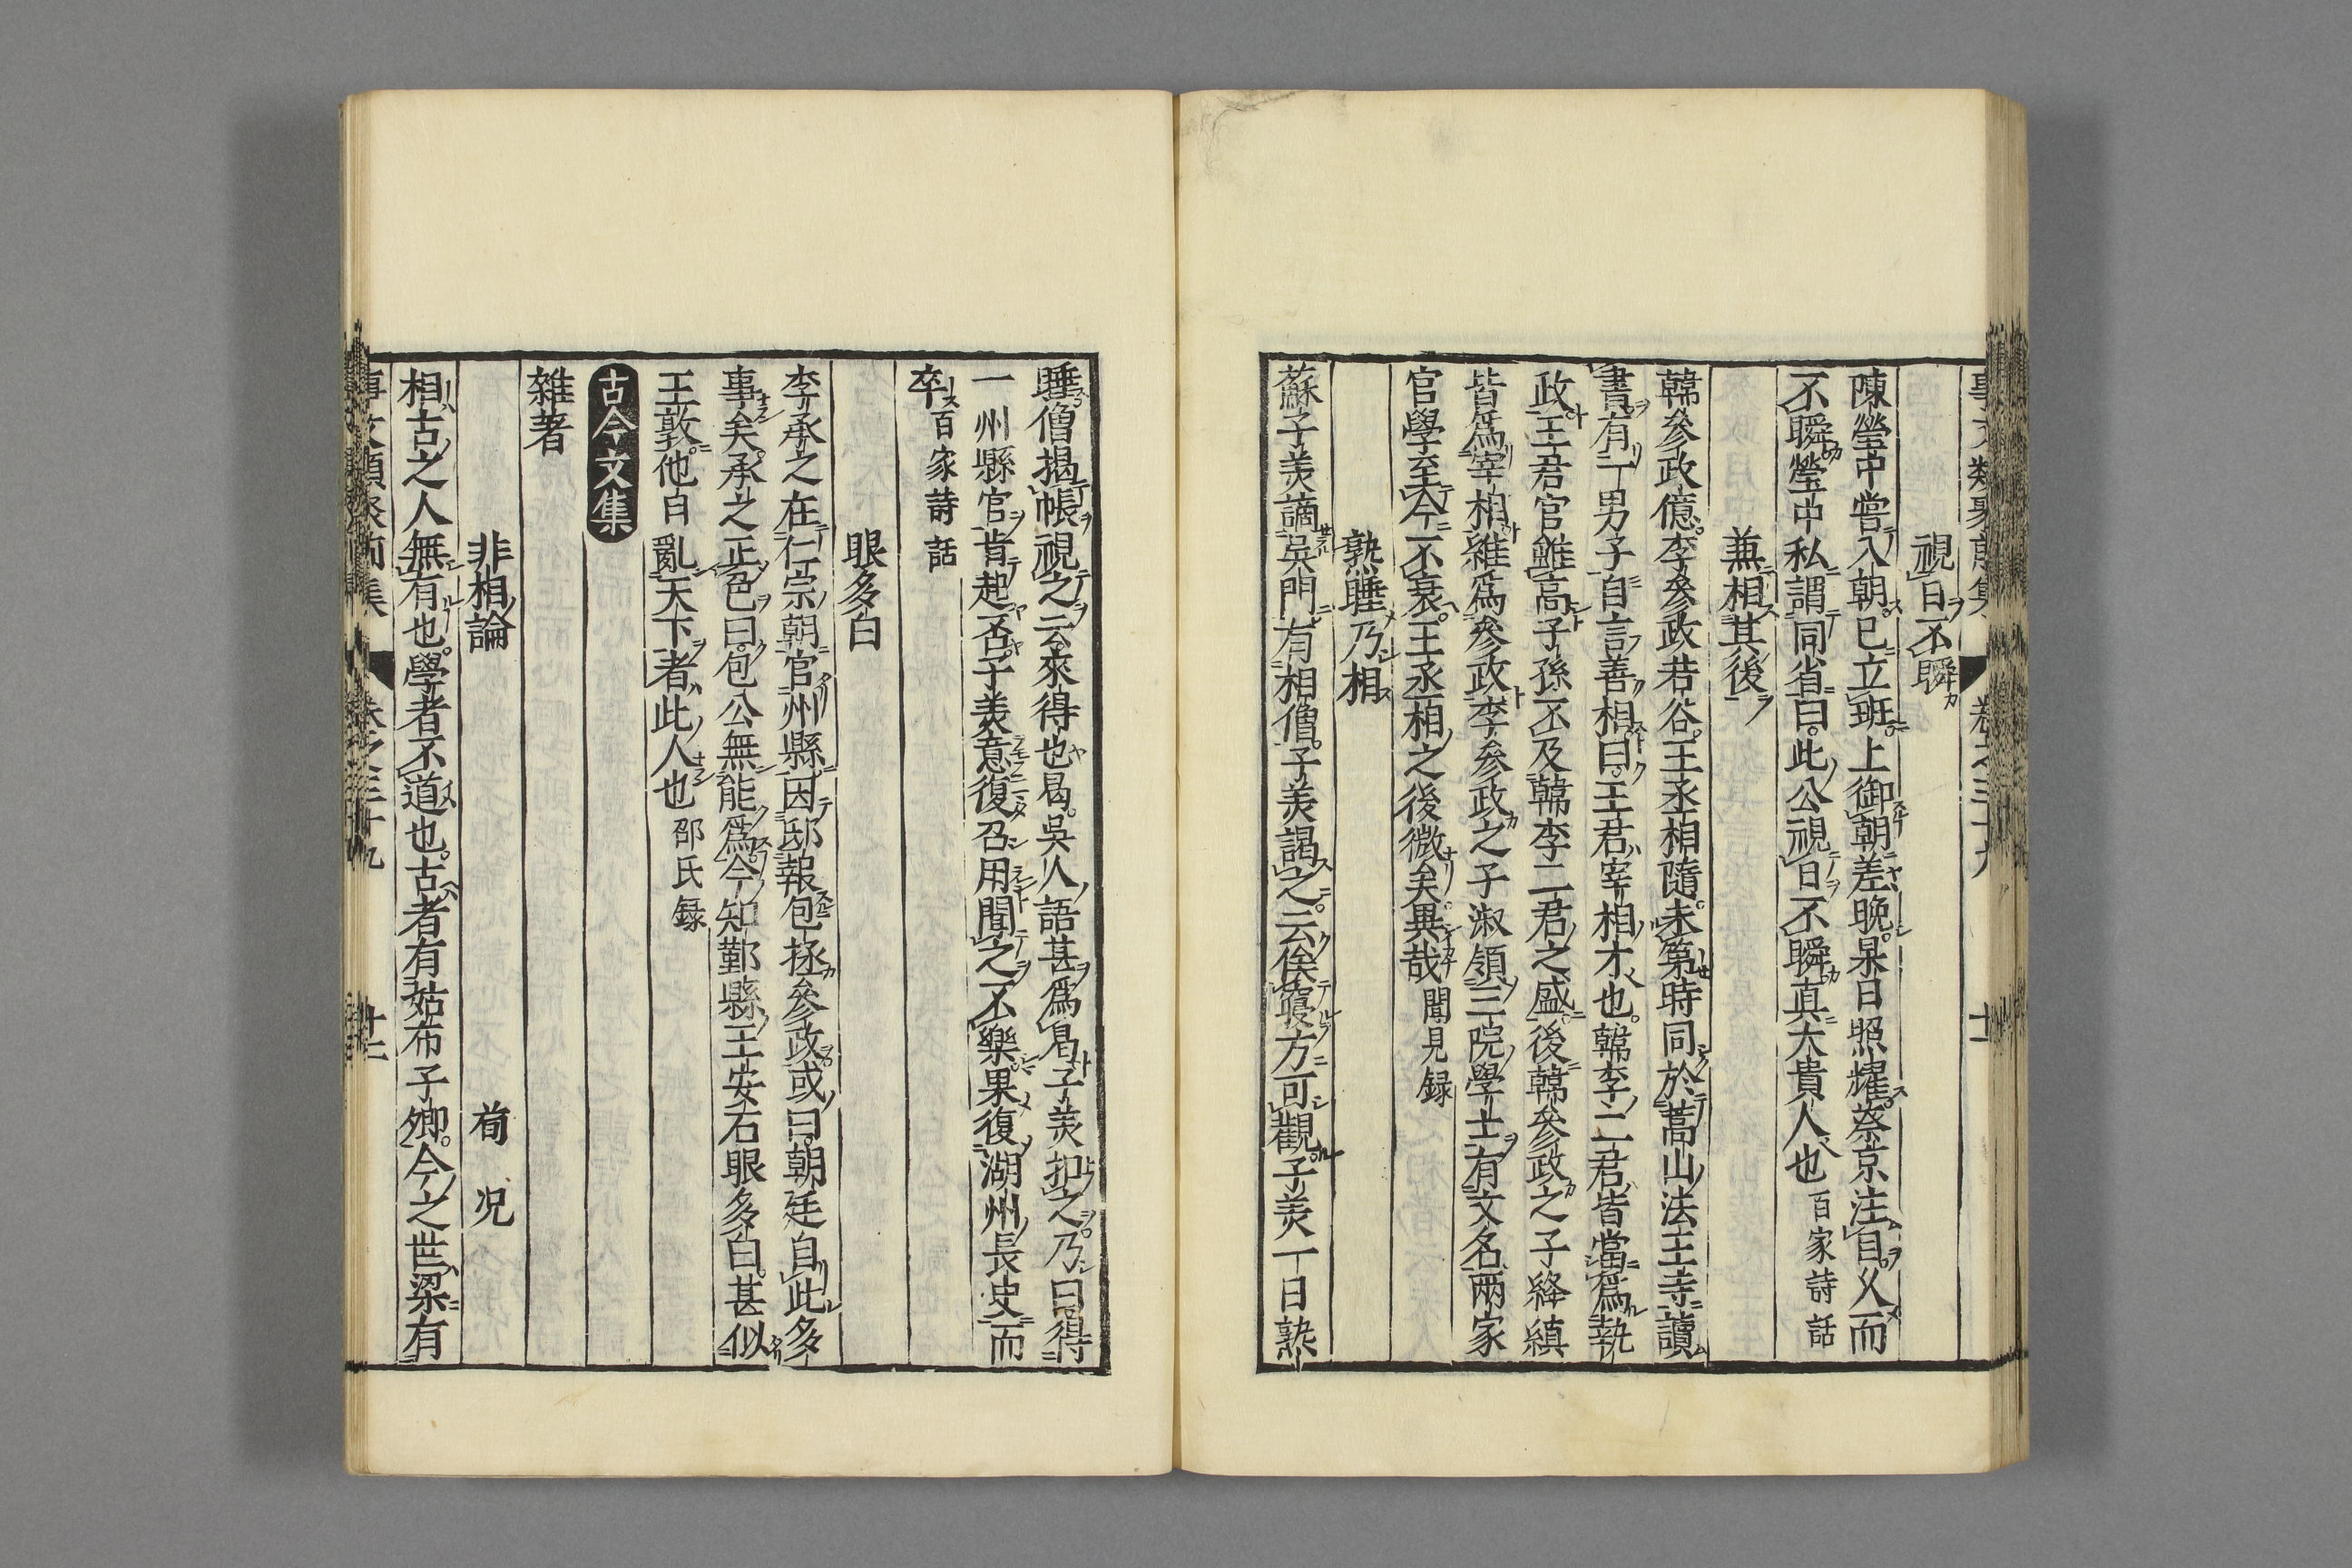 視日不瞬
陳瑩中嘗入朝已立班上御朝差晩杲日照耀蔡京注目久而
不瞬瑩中私謂同省曰此公視日不瞬真大貴人也百家詩話
兼相其後
韓參政億李參政若谷王丞相隨未第時同於嵩山法王寺讀
書有一男子自言善相曰王君宰相才也韓李二君皆當爲執
政王君官雖高子孫不及韓李二君之盛後韓參政之子絳縝
皆爲宰相維爲參政李參政之子淑領三院學士有文名兩家
官學至今不衰王丞相之後微矣異哉聞見録
熟睡乃相
蘇子美謫吳門有相僧子美謁之云俟寢方可觀子美一日熟
睡僧揭帳視之云來得也曷吳人語甚爲曷子美扣之乃曰得
一州縣官肯起否子美意復召用聞之不樂果復湖州長史而
卒百家詩話
眼多白
李承之在仁宗朝官州縣因邸報包拯參政或曰朝廷自此多
事矣承之正色曰包公無能爲今知鄞縣王安石眼多白甚似
王敦他日亂天下者此人也邵氏録
古今文集
雜著
非相論 荀况
相古之人無有也學者不道也古者有姑布子卿今之世梁有